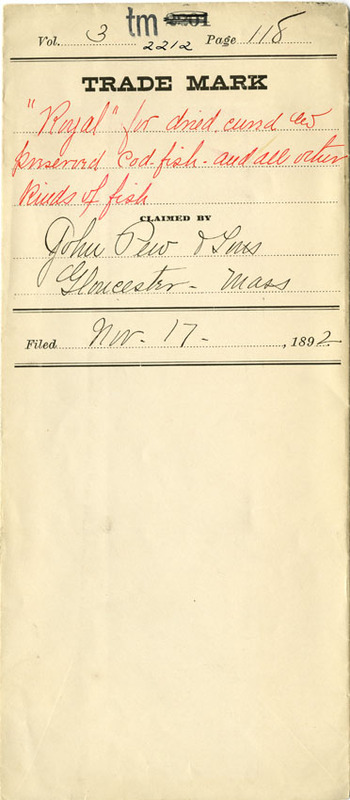 tm 2201
Vol. 3 2212 Page 118
TRADE MARK
"Royal" for dried cured and
preserved Cod fish - and all other
kinds of fish
CLAIMED BY
John Pew & Sons
Gloucester - Mass
Filed Nov. 17 - , 1892